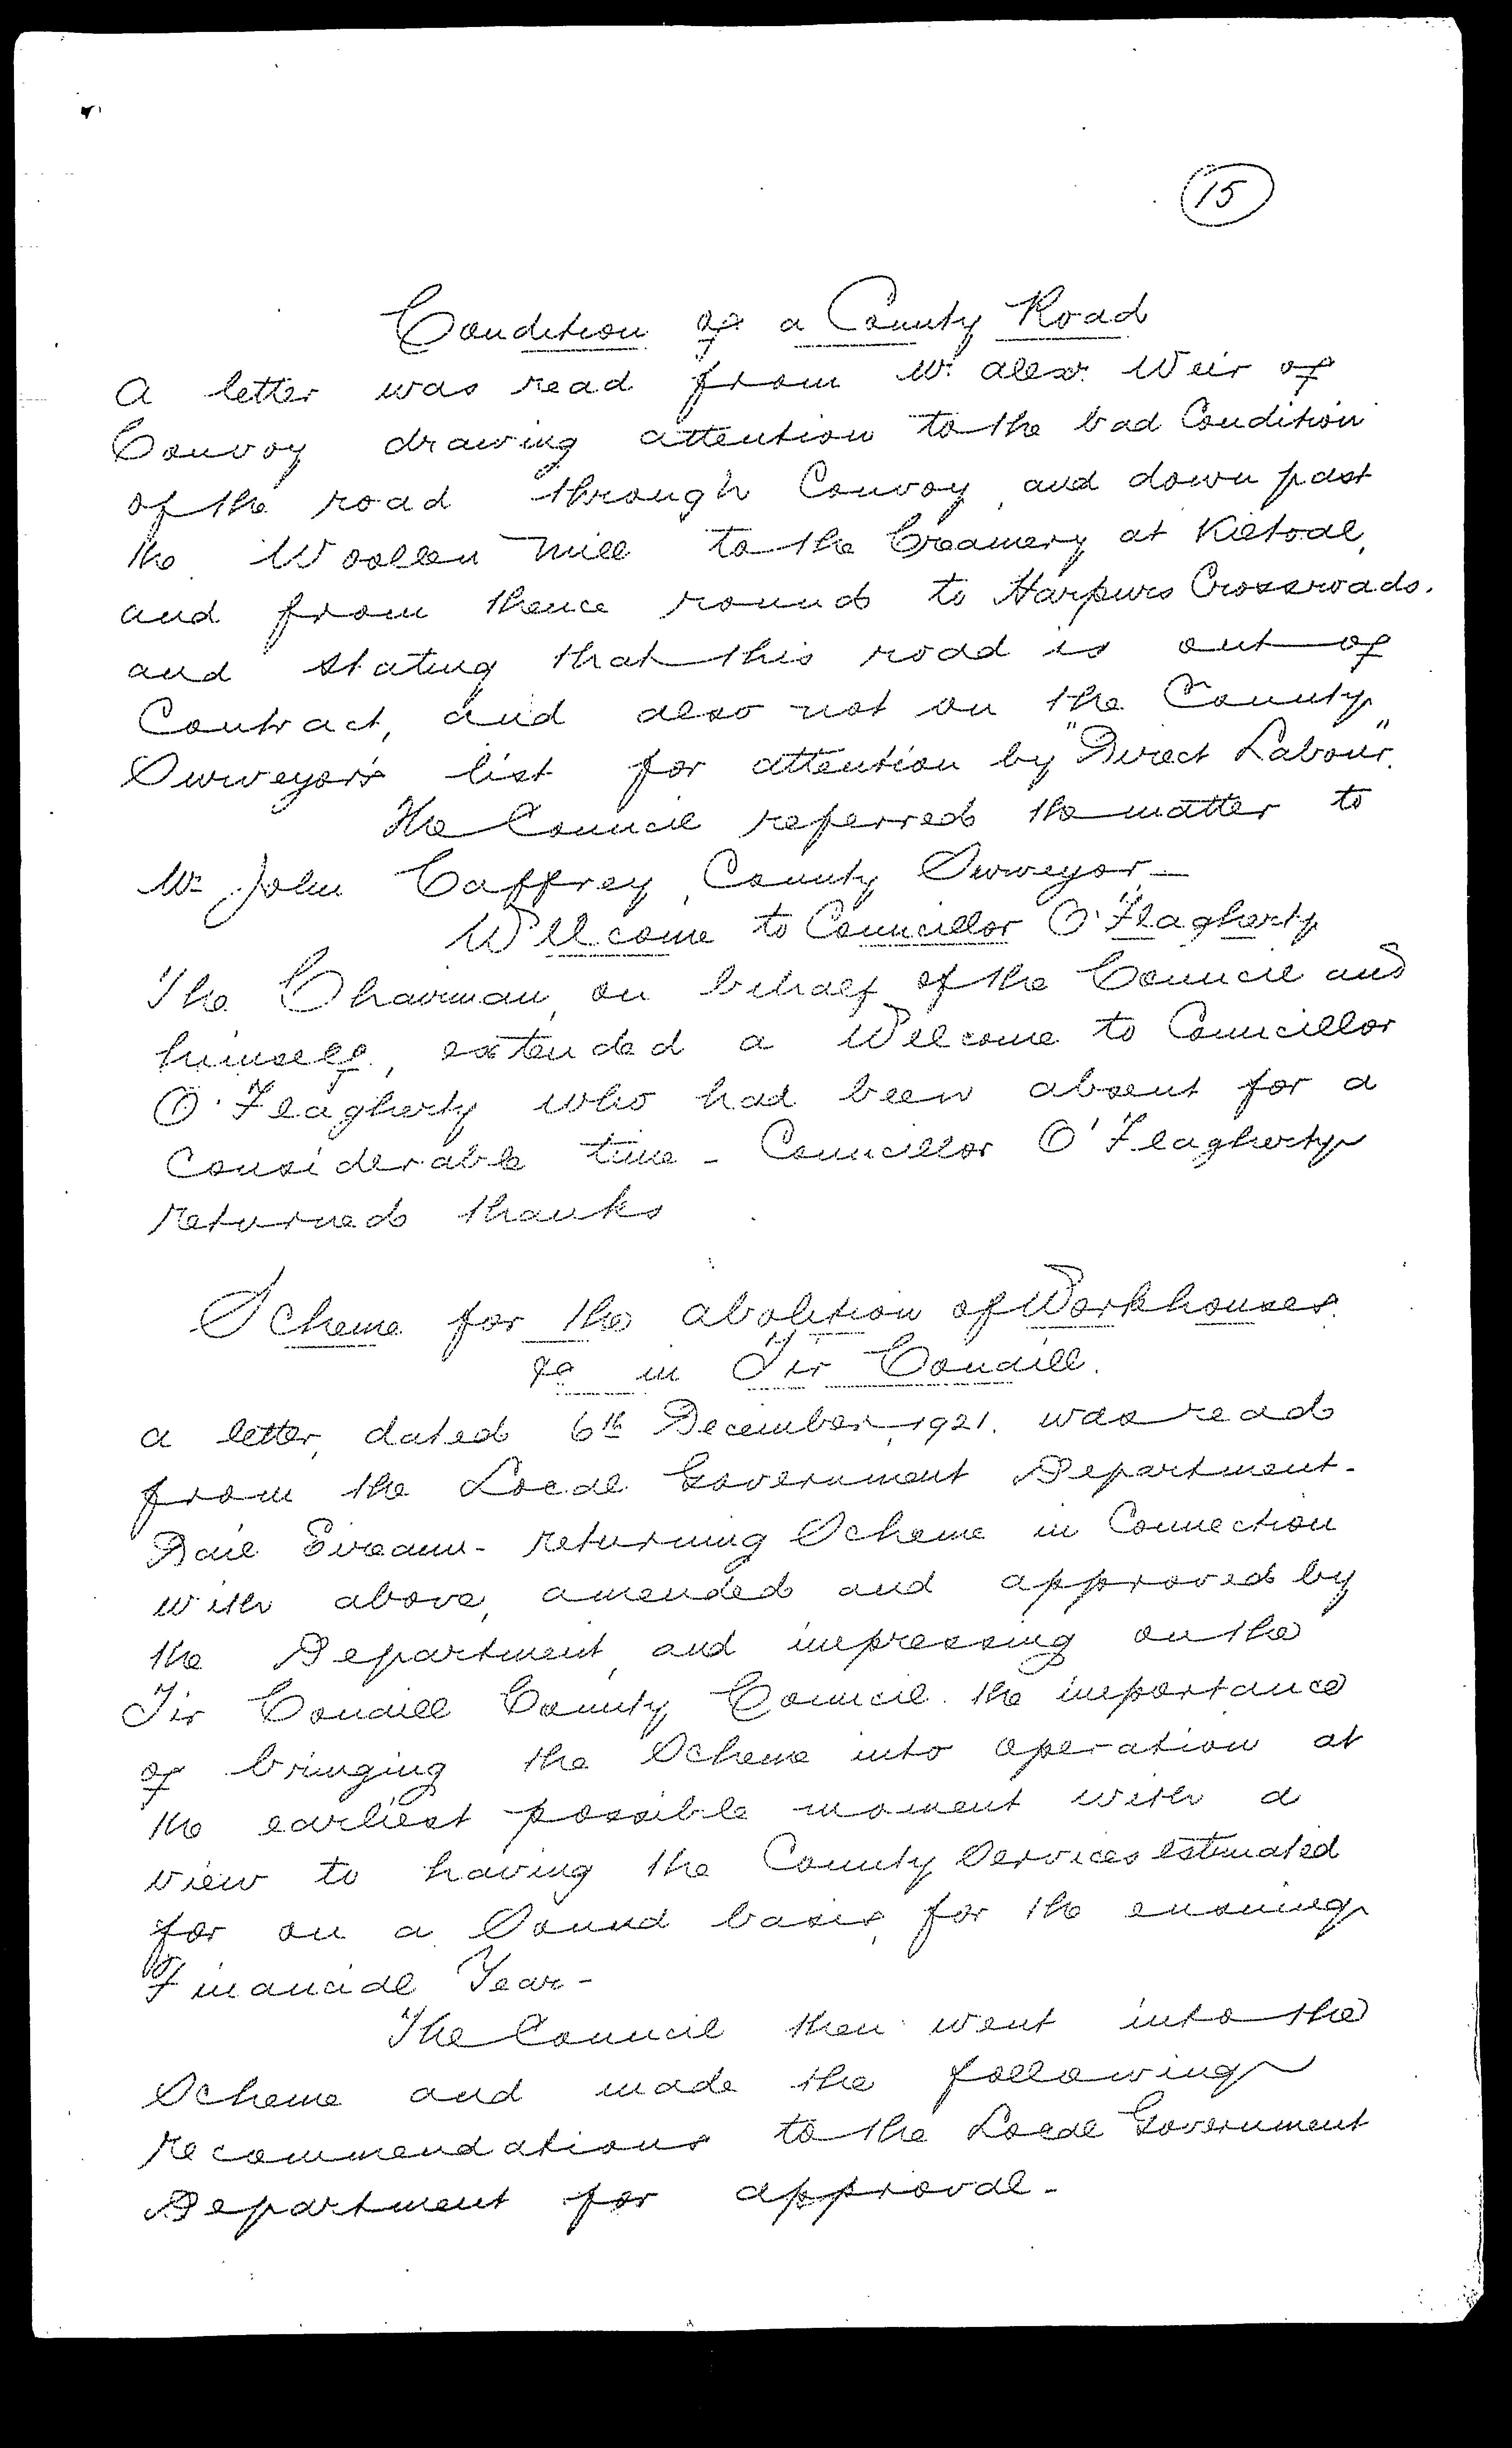 15
Condition of a County Road
A letter was read from Mr. Alex. Weir of
Convoy drawing attention to the bad Condition
of the road through Convoy and down past
the Woollen Mill to the Creamery at Kiltoal,
and from thence round to Harpurs Crossroads.
and stating that this road is out of
Contract, and also not on the County
Surveyor's list for attention by "Direct Labour".
The Council referred the matter to
Mr John Caffrey, County Surveyor -
Wellcome to Councillor O'Flagherty
The Chairman, on behalf of the Council and
himself, extended a Welcome to Councillor
O'Flagherty who had been absent for a
Considerable time - Councillor O'Flagherty
returned thanks
Scheme for the abolition of Workhouses
&c in Tir Conaill.
A letter, dated 6th December, 1921. was read
from the Local Government Department -
Dail Eireann - returning Scheme in Connection
with above, amended and approved by
the Department, and impressing on the
Tir Conaill County Council the importance
of bringing the Scheme into operation at
the earliest possible moment with a
view to having the County Services estimated
for on a Sound basis, for the ensuing
Financial Year -
The Council then went into the
Scheme and made the following
recommendations to the Local Government
Department for approval -